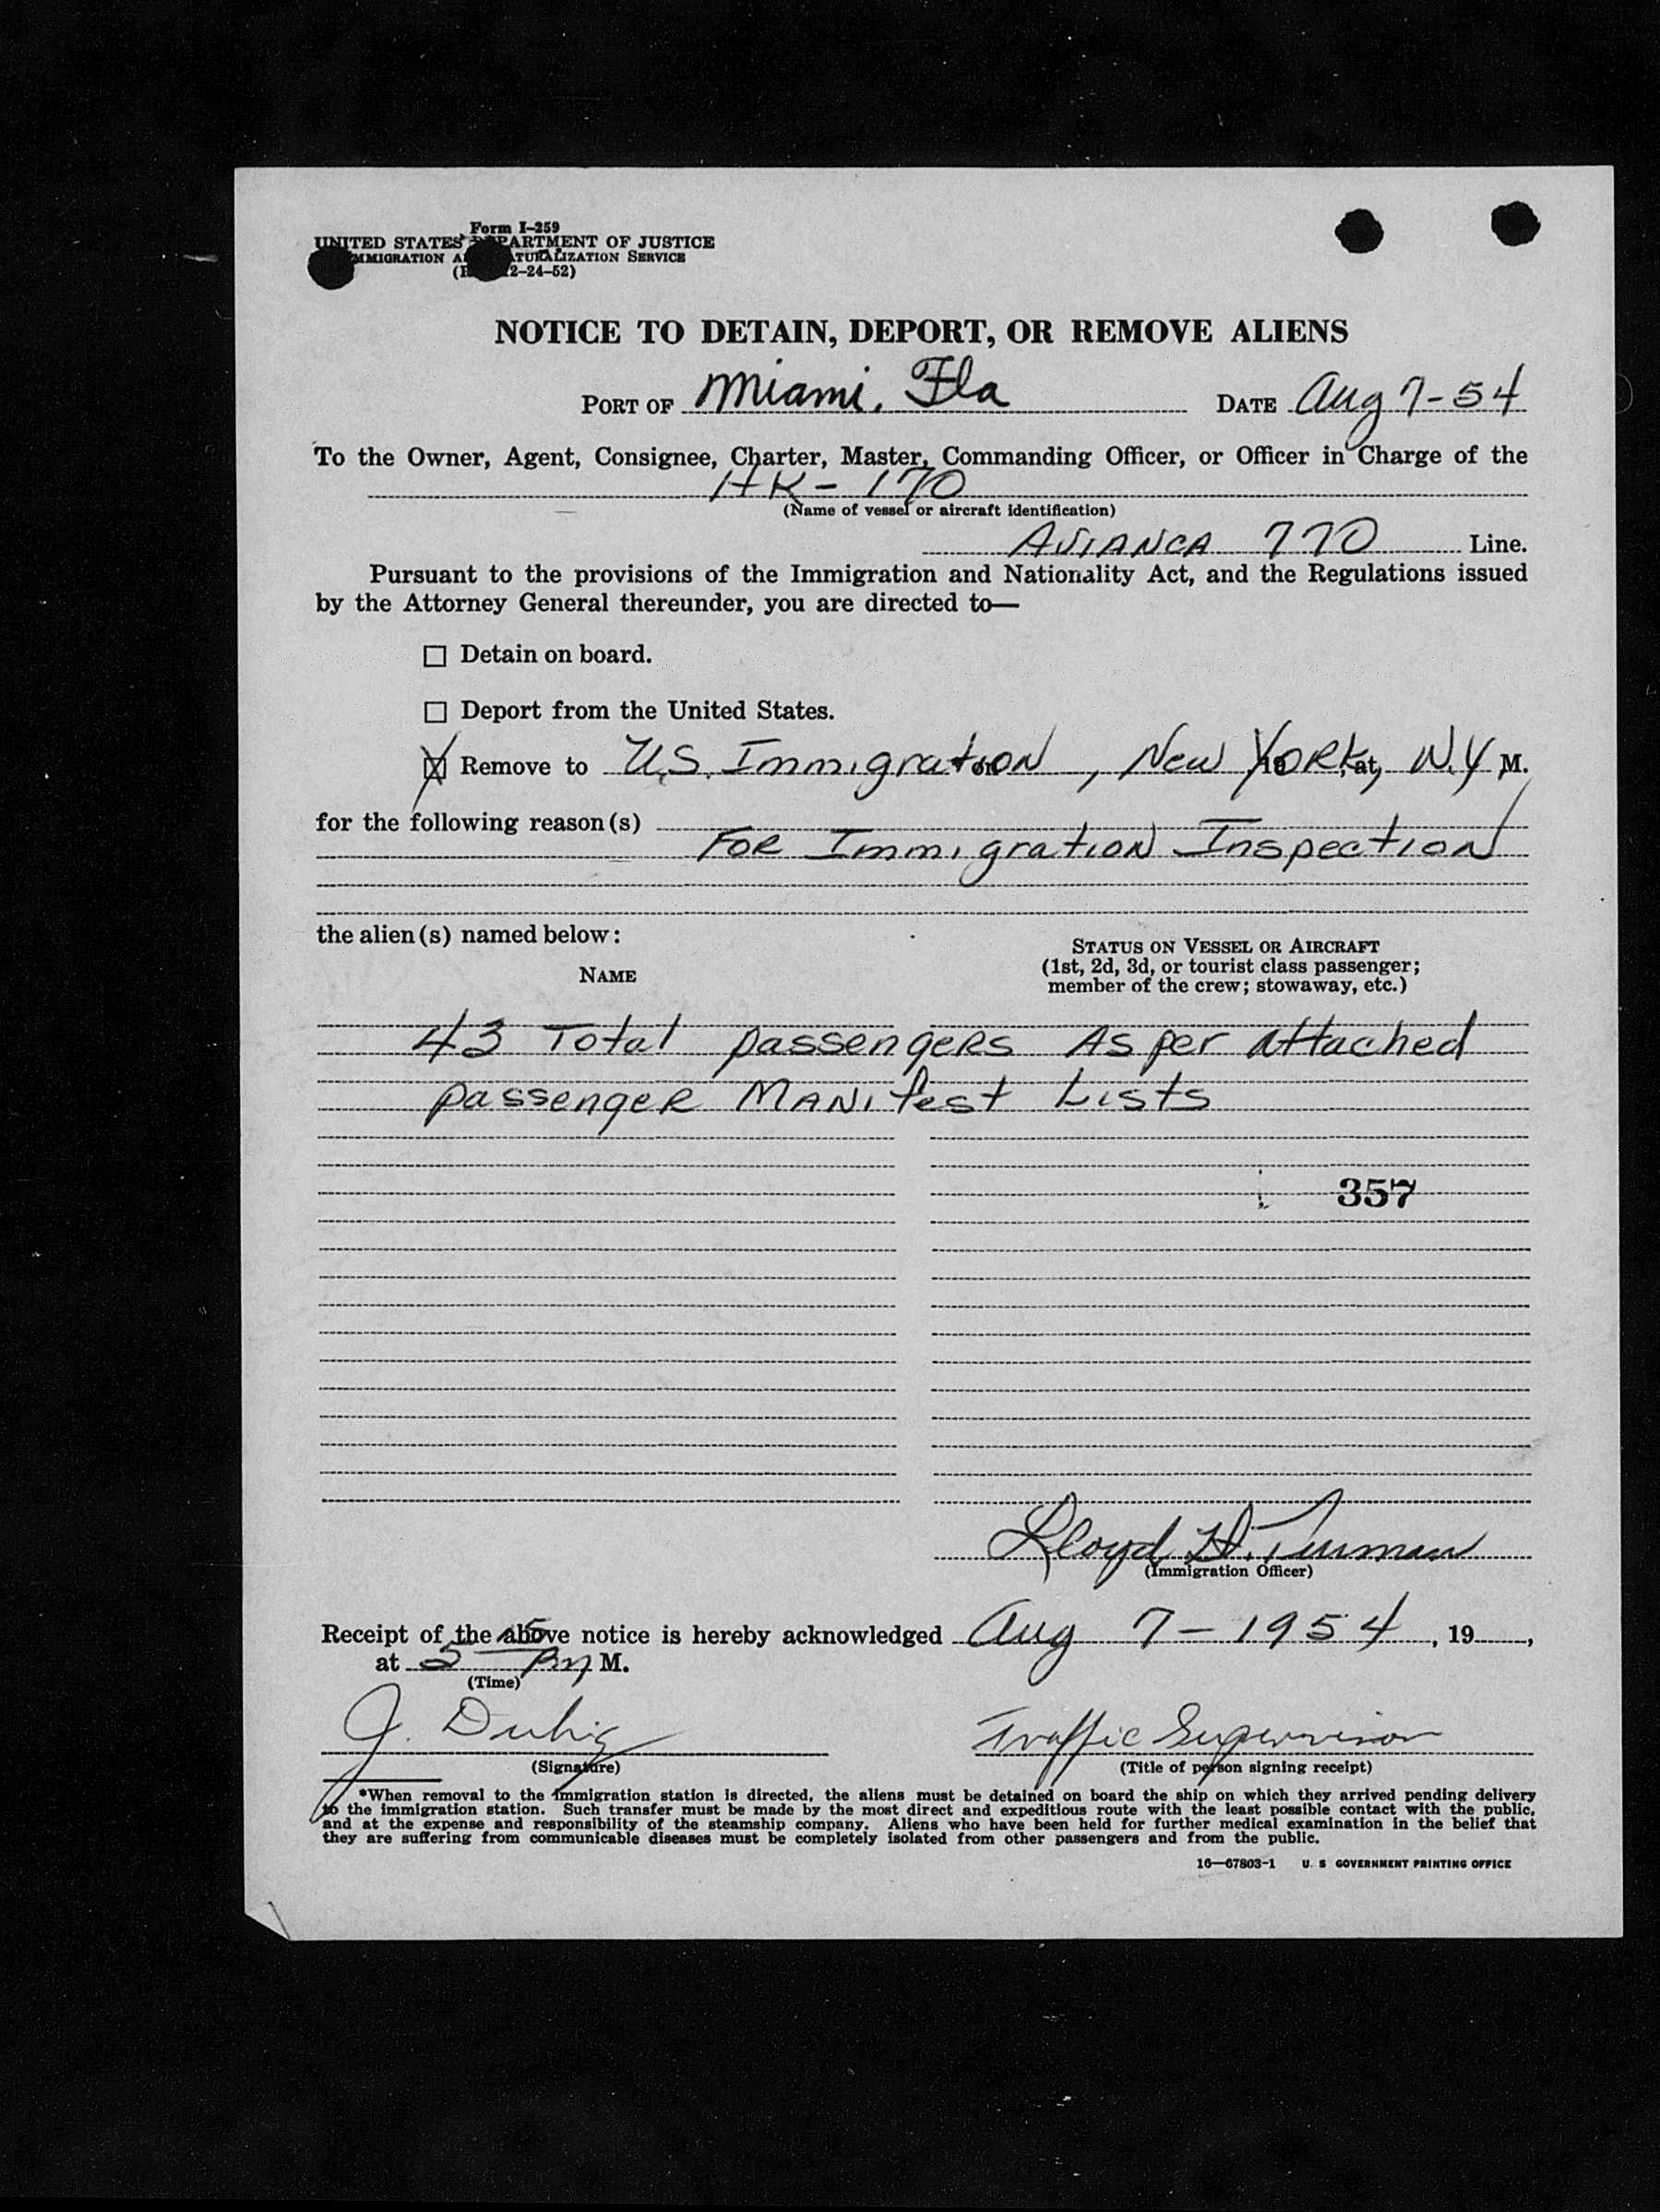 Form I-259
UNITED STATES DEPARTMENT OF JUSTICE
IMMIGRATION AND NATURALIZATION SERVICE
12-24-52)
NOTICE TO DETAIN, DEPORT, OR REMOVE ALIENS
PORT OF Miami, Fla DATE Aug 7-54
To the Owner, Agent, Consignee, Charter, Master, Commanding Officer, or Officer in Charge of the
HK-170
(Name of vessel or aircraft identification)
AVIANCA 770 Line.
Pursuant to the provisions of the Immigration and Nationality Act, and the Regulations issued
by the Attorney General thereunder, you are directed to—
☐ Detain on board.
☐ Deport from the United States.
☒ Remove to U.S. Immigration, New York, N.Y. M.
for the following reason(s)
FOR Immigration Inspection
the alien(s) named below:
NAME
STATUS ON VESSEL OR AIRCRAFT
(1st, 2d, 3d, or tourist class passenger;
member of the crew; stowaway, etc.)
43 Total passengers As per attached
passenger Manifest Lists
357
Lloyd H. Turman
(Immigration Officer)
Receipt of the above notice is hereby acknowledged Aug 7-1954, 19 ,
at 5 15 PM M.
(Time)
J. Duhig Traffic Supervisor
(Signature) (Title of person signing receipt)
*When removal to the immigration station is directed, the aliens must be detained on board the ship on which they arrived pending delivery
to the immigration station. Such transfer must be made by the most direct and expeditious route with the least possible contact with the public,
and at the expense and responsibility of the steamship company. Aliens who have been held for further medical examination in the belief that
they are suffering from communicable diseases must be completely isolated from other passengers and from the public.
16—67803-1 U. S GOVERNMENT PRINTING OFFICE